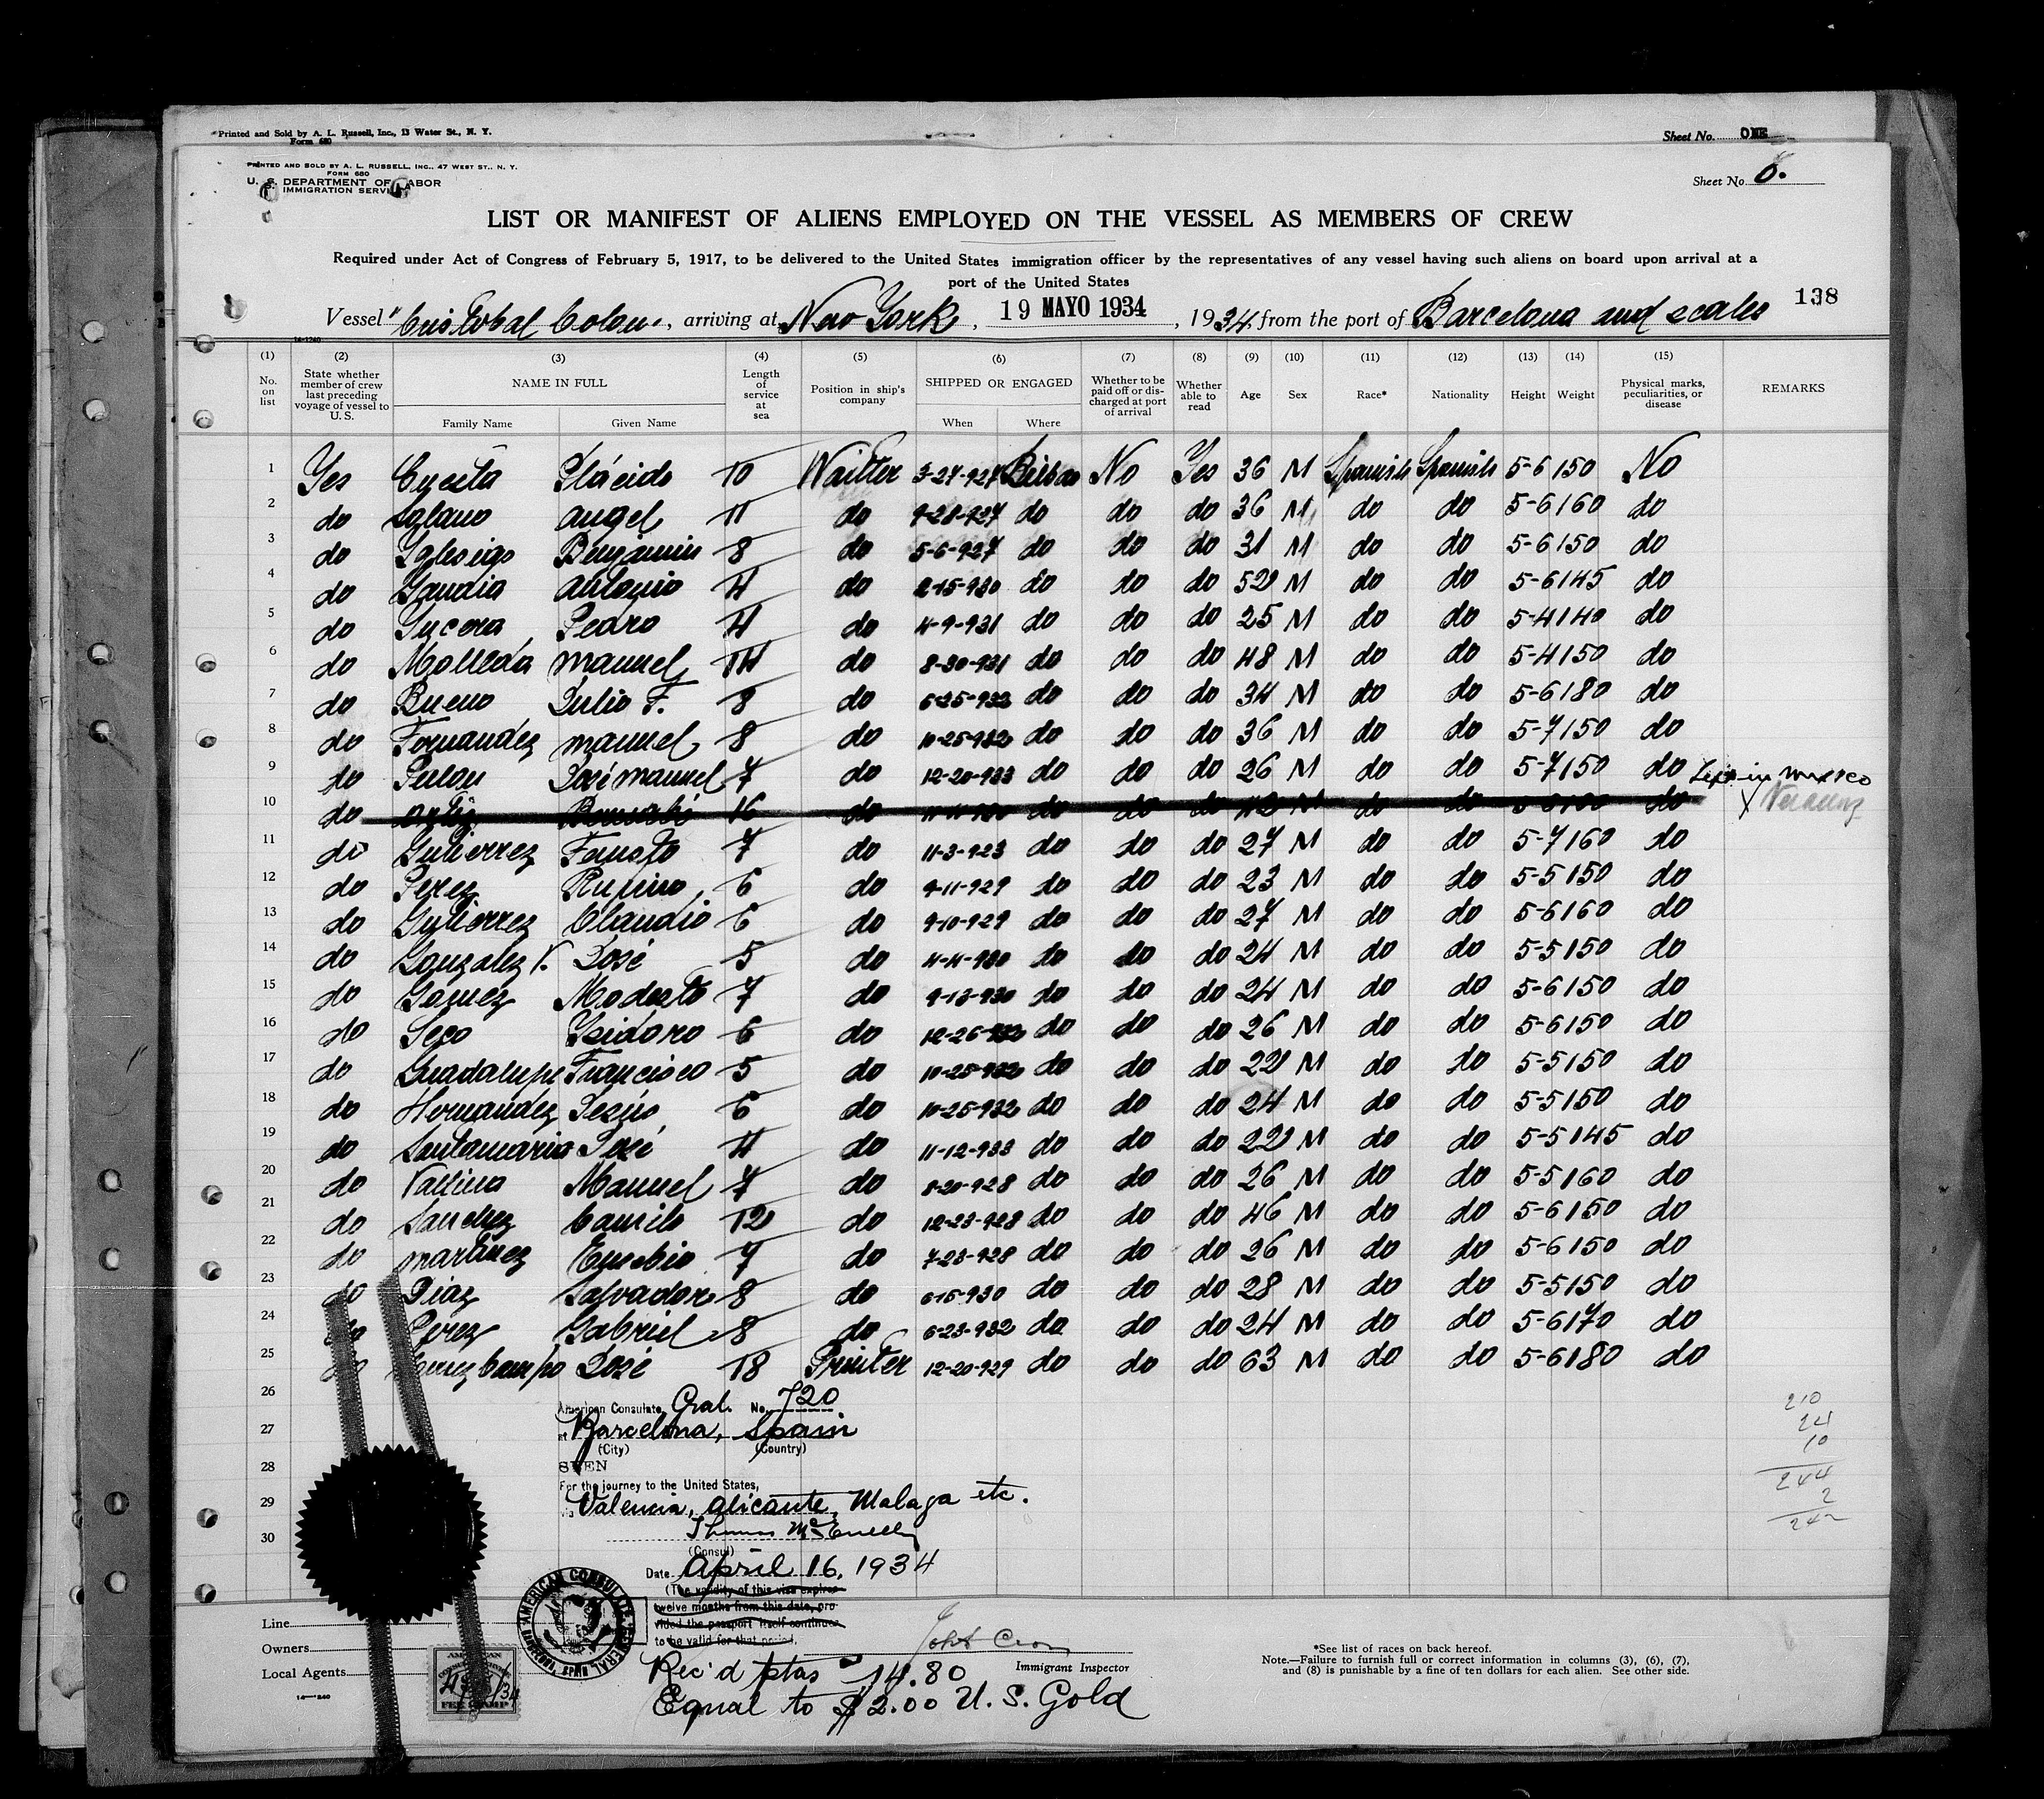 Printed and Sold by A. L. Russell, Inc., 13 Water St., N. Y.
Form 680
Sheet No. ONE
PRINTED AND SOLD BY A. L. RUSSELL, INC., 47 WEST ST., N. Y.
FORM 680
U. S. DEPARTMENT OF LABOR
IMMIGRATION SERVICE
Sheet No. 6.
LIST OR MANIFEST OF ALIENS EMPLOYED ON THE VESSEL AS MEMBERS OF CREW
Required under Act of Congress of February 5, 1917, to be delivered to the United States immigration officer by the representatives of any vessel having such aliens on board upon arrival at a
port of the United States
138
Vessel "Cristobal Colon", arriving at New York, 19 MAYO 1934, 1934, from the port of Barcelona and scales
14-1240
(1) (2) (3) (4) (5) (6) (7) (8) (9) (10) (11) (12) (13) (14) (15)
No. on list | State whether member of crew last preceding voyage of vessel to U. S. | NAME IN FULL Family Name Given Name | Length of service at sea | Position in ship's company | SHIPPED OR ENGAGED When Where | Whether to be paid off or discharged at port of arrival | Whether able to read | Age | Sex | Race* | Nationality | Height | Weight | Physical marks, peculiarities, or disease | REMARKS
1 Yes Cuesta Plácido 10 Waitter 3-27-927 Bilbao No Yes 36 M Spanish Spanish 5-6 150 No
2 do Solano Angel 11 do 9-28-927 do do do 36 M do do 5-6 160 do
3 do Yglesias Benjamin 8 do 5-6-927 do do do 31 M do do 5-6 150 do
4 do Gandia Antonio 4 do 2-15-930 do do do 52 M do do 5-6 145 do
5 do Pedro 4 do 4-9-931 do do do 25 M do do 5-4 140 do
6 do Molleda Manuel 14 do 8-30-931 do do do 48 M do do 5-4 150 do
7 do Bueno Julio F. 8 do 6-25-932 do do do 34 M do do 5-6 180 do
8 do Fernandez Manuel 8 do 10-25-932 do do do 36 M do do 5-7 150 do
9 do José Manuel 7 do 12-20-933 do do do 26 M do do 5-7 150 do
in Mexico
10 do Ortiz 16 do do do do 42 M do do do X Veracruz
11 do Gutierrez Fausto 7 do 11-3-923 do do do 27 M do do 5-7 160 do
12 do Perez Rufino 6 do 9-11-929 do do do 23 M do do 5-5 150 do
13 do Gutierrez Claudio 6 do 9-10-929 do do do 27 M do do 5-6 160 do
14 do Gonzalez V. José 5 do 4-4-930 do do do 24 M do do 5-5 150 do
15 do Gomez Modesto 7 do 9-13-930 do do do 24 M do do 5-6 150 do
16 do Seco Ysidoro 6 do 12-26-932 do do do 26 M do do 5-6 150 do
17 do Guadalupe Francisco 5 do 10-25-932 do do do 22 M do do 5-5 150 do
18 do Hernandez Jesús 6 do 10-25-932 do do do 24 M do do 5-5 150 do
19 do Santamaria José 4 do 11-12-933 do do do 22 M do do 5-5 145 do
20 do Vallina Manuel 7 do 8-20-928 do do do 26 M do do 5-5 160 do
21 do Sanchez Camilo 12 do 12-23-928 do do do 46 M do do 5-6 150 do
22 do Martinez Eusebio 7 do 7-23-928 do do do 26 M do do 5-6 150 do
23 do Diaz Salvador 8 do 6-16-930 do do do 28 M do do 5-5 150 do
24 do Perez Gabriel 8 do 6-23-932 do do do 24 M do do 5-6 170 do
25 do Campo José 18 Printer 12-20-929 do do do 63 M do do 5-6 180 do
26
27
28
29
30
210
24
10
244
2
242
American Consulate Gral. No. 720
at Barcelona, Spain
(City) (Country)
SEEN
For the journey to the United States,
via Valencia, Alicante, Malaga etc.
Thomas
(Consul)
Date April 16, 1934
(The validity of this visa expires
twelve months from this date, pro-
vided the passport itself continues
to be valid for that period.
AMERICAN CONSULATE GENERAL
BARCELONA, SPAIN
Rec'd ptas 14.80
Equal to $2.00 U. S. Gold
Line
Owners
Local Agents
14-1240
AMERICAN
FEE STAMP
Immigrant Inspector
*See list of races on back hereof.
Note.—Failure to furnish full or correct information in columns (3), (6), (7),
and (8) is punishable by a fine of ten dollars for each alien. See other side.